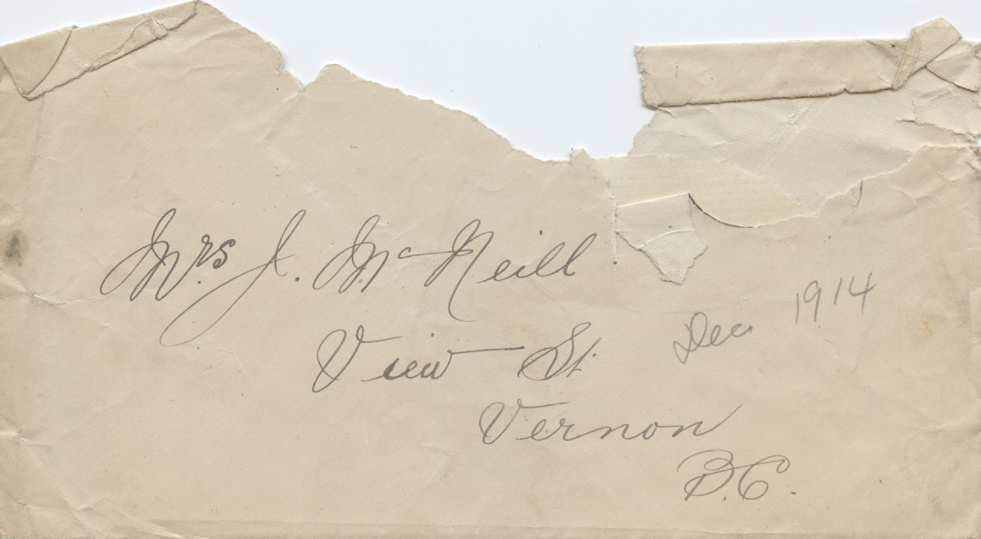 Mrs. J. McNeill
View St.
Dec 1914
Vernon
B.C.